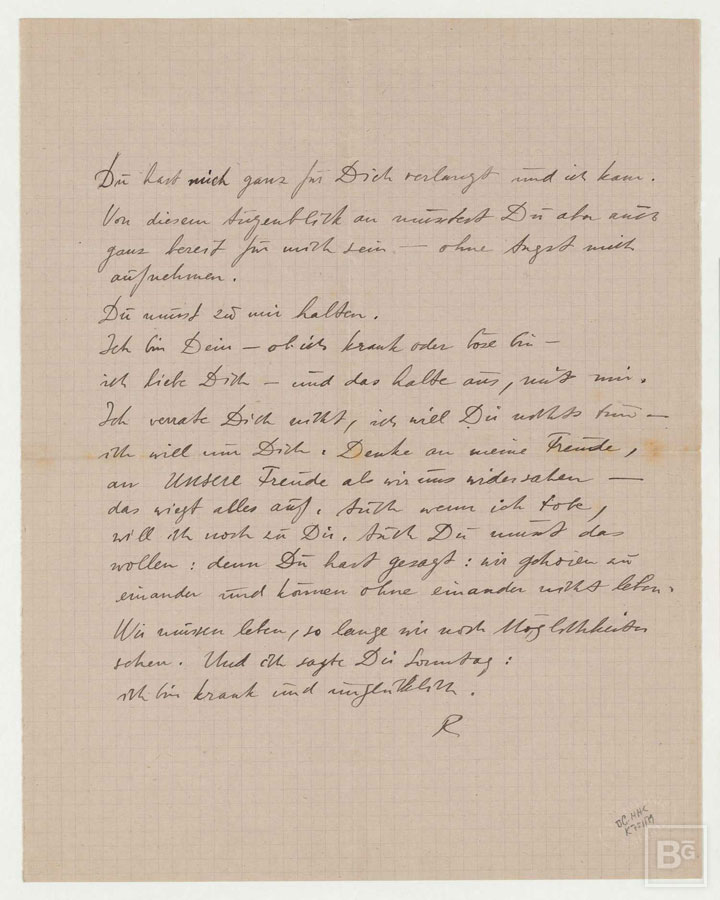 Du hast mich ganz für Dich verlangt und ich kam.
Von diesem Augenblick an musstest Du aber auch
ganz bereit für mich sein — ohne Angst mich
aufnehmen.
Du musst zu mir halten.
Ich bin Dein — ob ich krank oder böse bin —
ich liebe Dich — und das halte aus, mit mir.
Ich verrate Dich nicht, ich will Dir nichts tun —
ich will nur Dich. Denke an meine Freude,
an unsere Freude als wir uns widersahen —
das wiegt alles auf. Auch wenn ich tobe,
will ich noch zu Dir. Auch Du musst das
wollen: denn Du hast gesagt: wir gehören zu
einander und können ohne einander nicht leben.
Wir müssen leben, so lange wir noch Möglichkeiten
sehen. Und ich sagte Dir Sonntag:
ich bin krank und unglücklich.
R
BG